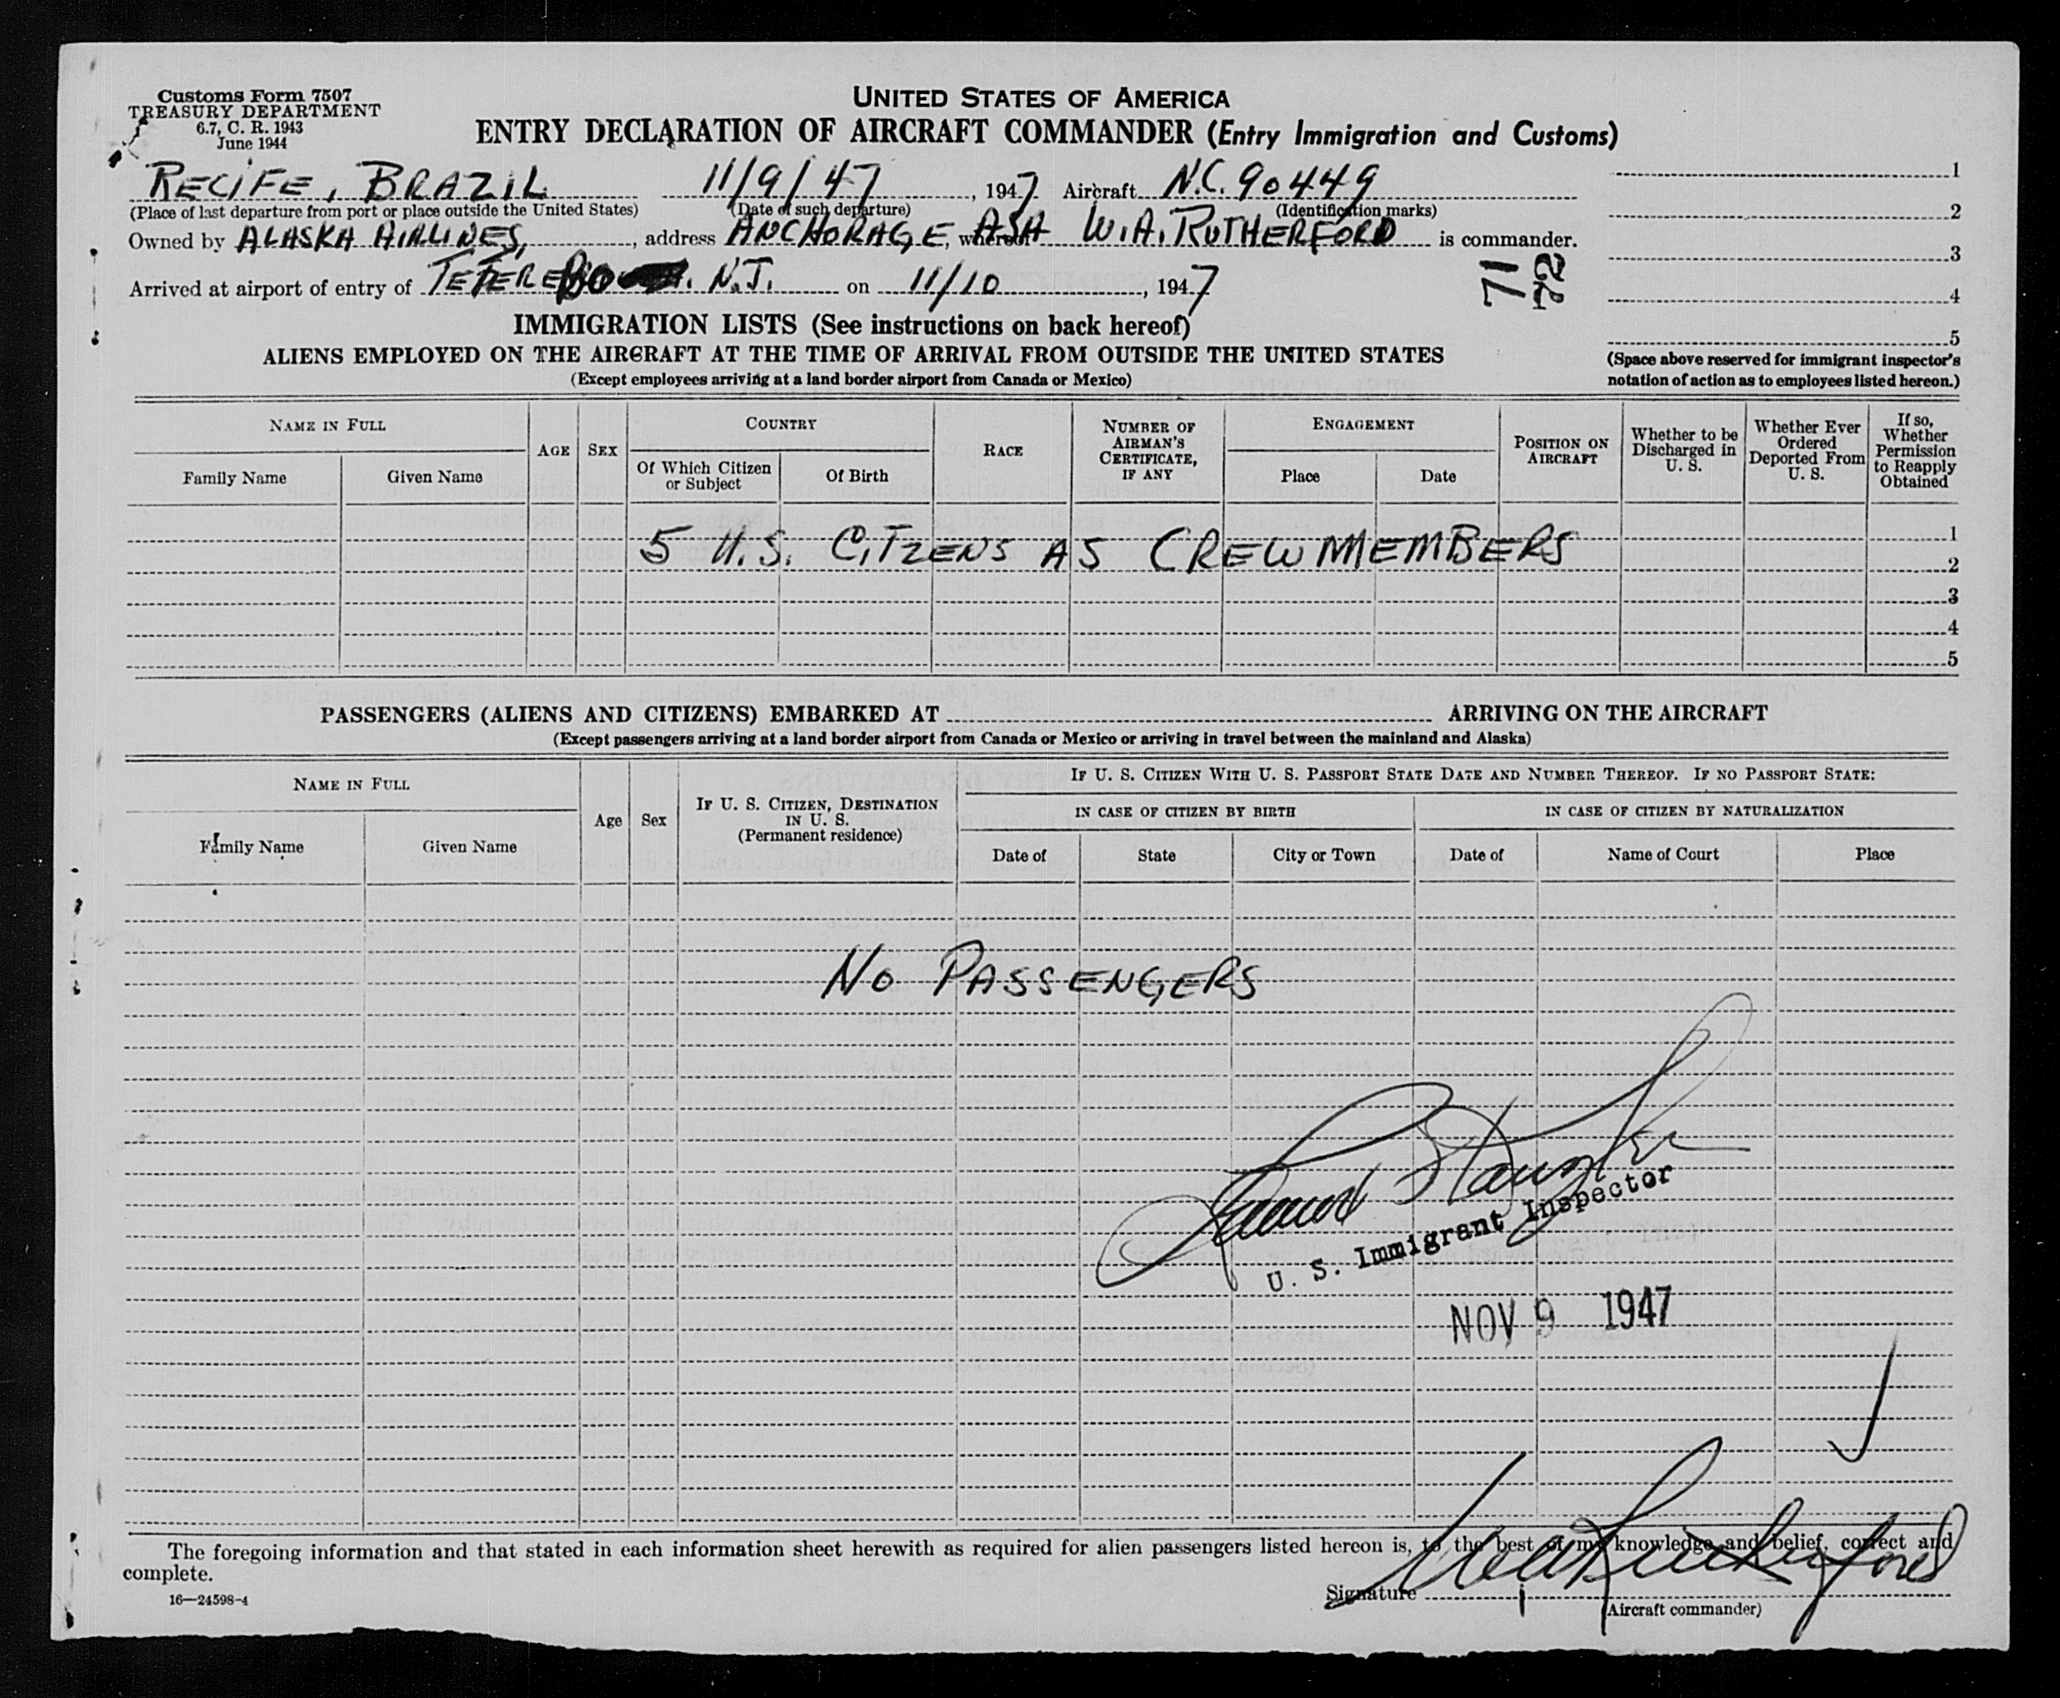 Customs Form 7507
TREASURY DEPARTMENT
6.7, C. R. 1943
June 1944
UNITED STATES OF AMERICA
ENTRY DECLARATION OF AIRCRAFT COMMANDER (Entry Immigration and Customs)
RECIFE, BRAZIL 11/9/47, 1947 Aircraft N.C. 90449
(Place of last departure from port or place outside the United States) (Date of such departure) (Identification marks)
Owned by ALASKA AIRLINES, , address ANCHORAGE, whereof W.A. RUTHERFORD is commander.
Arrived at airport of entry of N.J. on 11/10, 1947
71
72
1
2
3
4
5
(Space above reserved for immigrant inspector's
notation of action as to employees listed hereon.)
IMMIGRATION LISTS (See instructions on back hereof)
ALIENS EMPLOYED ON THE AIRCRAFT AT THE TIME OF ARRIVAL FROM OUTSIDE THE UNITED STATES
(Except employees arriving at a land border airport from Canada or Mexico)
NAME IN FULL
Family Name
Given Name
AGE
SEX
COUNTRY
Of Which Citizen
or Subject
Of Birth
RACE
NUMBER OF
AIRMAN'S
CERTIFICATE,
IF ANY
ENGAGEMENT
Place
Date
POSITION ON
AIRCRAFT
Whether to be
Discharged in
U. S.
Whether Ever
Ordered
Deported From
U. S.
If so,
Whether
Permission
to Reapply
Obtained
1
5 U.S. CITZENS AS CREWMEMBERS
2
3
4
5
PASSENGERS (ALIENS AND CITIZENS) EMBARKED AT ARRIVING ON THE AIRCRAFT
(Except passengers arriving at a land border airport from Canada or Mexico or arriving in travel between the mainland and Alaska)
NAME IN FULL
Family Name
Given Name
Age
Sex
IF U. S. CITIZEN, DESTINATION
IN U. S.
(Permanent residence)
IF U. S. CITIZEN WITH U. S. PASSPORT STATE DATE AND NUMBER THEREOF. IF NO PASSPORT STATE:
IN CASE OF CITIZEN BY BIRTH
IN CASE OF CITIZEN BY NATURALIZATION
Date of
State
City or Town
Date of
Name of Court
Place
NO PASSENGERS
U. S. Immigrant Inspector
NOV 9 1947
The foregoing information and that stated in each information sheet herewith as required for alien passengers listed hereon is, to the best of my knowledge and belief, correct and
complete.
16—24598-4
Signature WA Rutherford
(Aircraft commander)